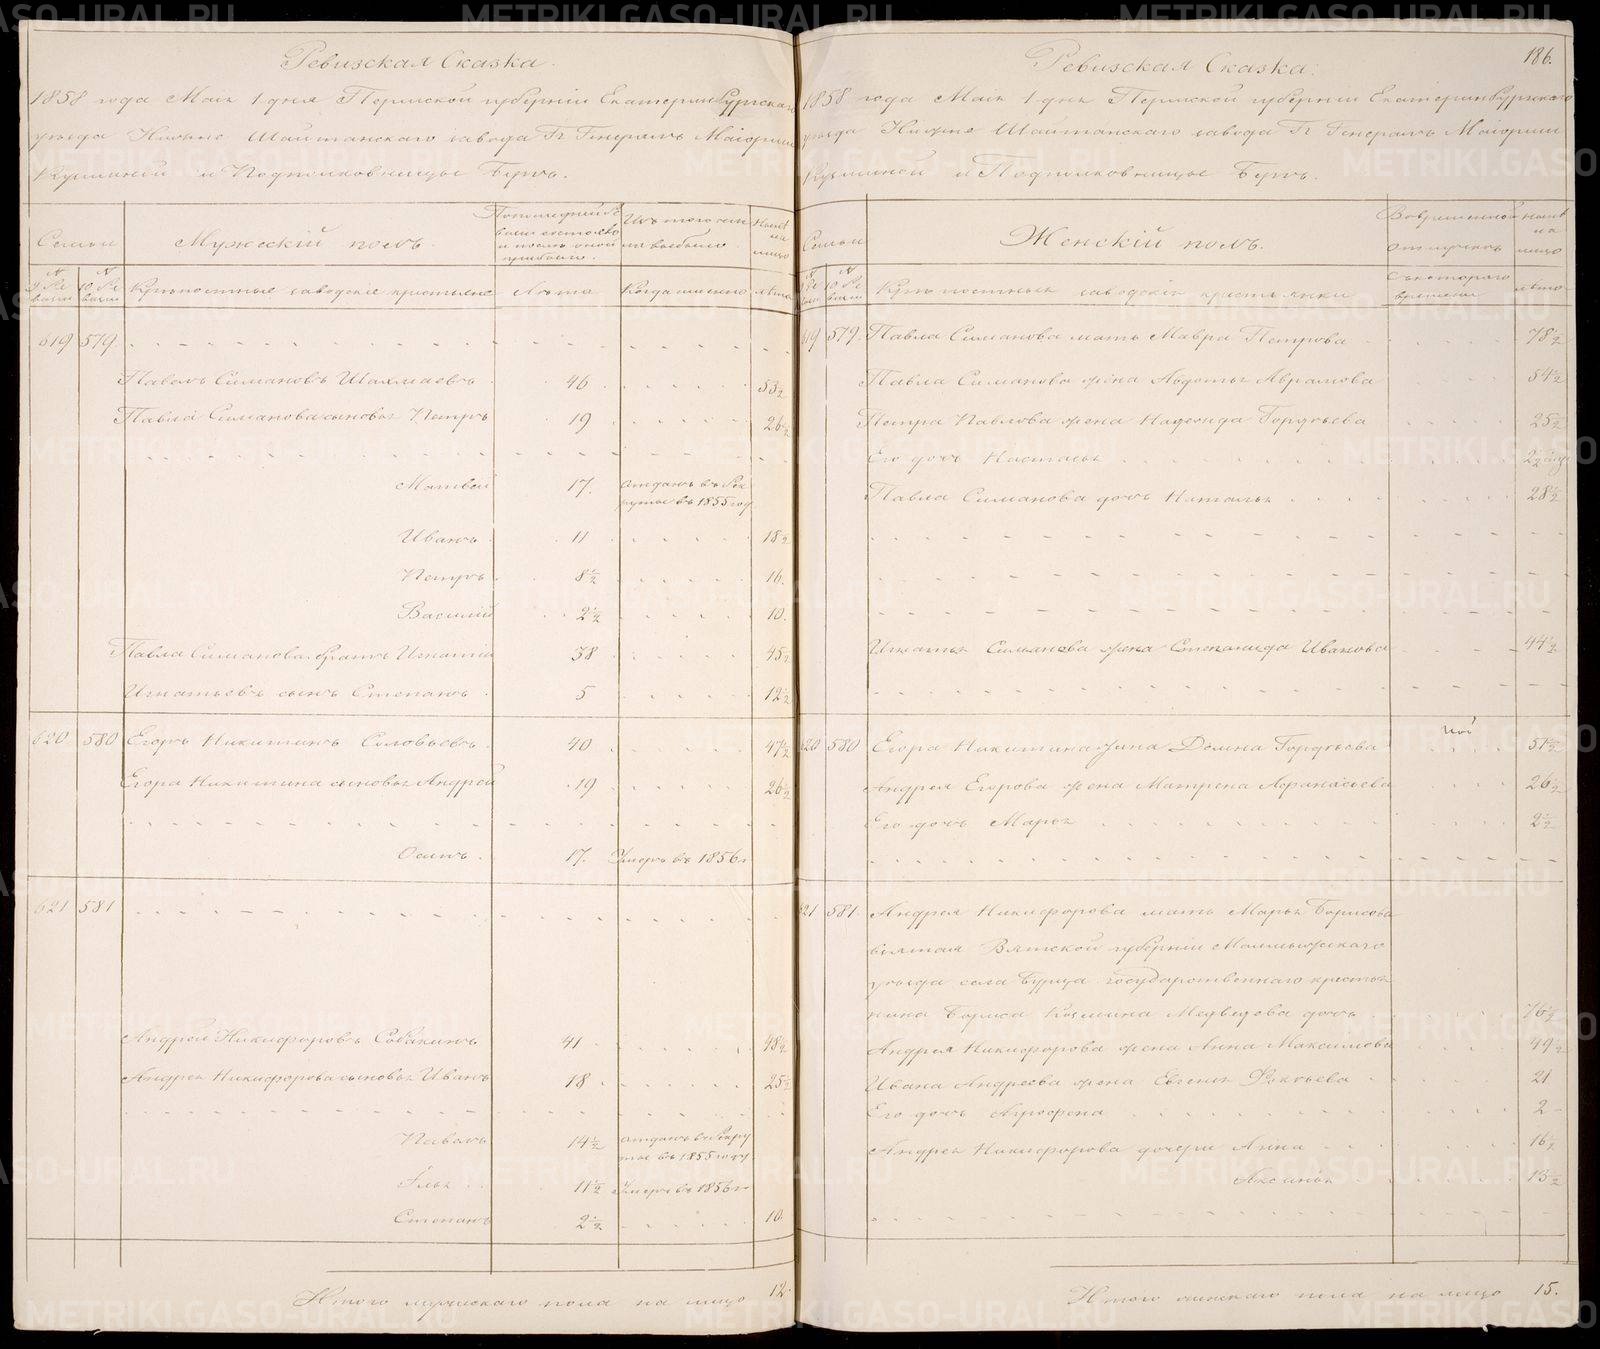 Ревизская Сказка.
1858 года Маія 1 дня Пермской губерніи Екатеринбургскаго
уѣзда Нижне Шайтанскаго завода Гг Генералъ Маіорши
Кузьминой и Подполковницы Бурчъ.
Семьи
Мужескій полъ.
Изъ того числа выбыло.
Нынѣ на лицо
№ 9 Ревизіи
№ 10 Ревизіи
Крѣпостные заводскіе крестьяне
Лѣта
Когда именно
лѣта
619 579
Павелъ Симановъ Шахмаевъ 46 53½
Павла Симанова сыновья Петръ 19 26½
Матвей 17. отданъ въ Рек
руты въ 1855 год
Иванъ 11 18½
Петръ 8½ 16.
Василій 2½ 10.
Павла Симанова братъ Игнатій 38 45½
Игнатьевъ сынъ Степанъ 5 12½
620 580 Егоръ Никитинъ Соловьевъ 40 47½
Егора Никитина сыновья Андрей 19 26½
Осипъ 17. Умеръ въ 1856 г
621 581
Андрей Никифоровъ Собакинъ 41 48½
Андрея Никифорова сыновья Иванъ 18 25½
Павелъ 14½ отданъ въ Рекру
ты въ 1855 году
Илья 11½ Умеръ въ 1856 г
Степанъ 2½ 10
Итого мужескаго пола на лицо 12.
186.
Ревизская Сказка.
1858 года Маія 1 дня Пермской губерніи Екатеринбургскаго
уѣзда Нижне Шайтанскаго завода Гг Генералъ Маіорши
Кузьминой и Подполковницы Бурчъ.
Семьи
Женскій полъ.
Во временной отлучкѣ
Нынѣ на лицо
№ 9 Ревизіи
№ 10 Ревизіи
Крѣпостныя заводскія крестьянки
Съ котораго времени
лѣта
619 579 Павла Симанова мать Мавра Петрова 78½
Павла Симанова жена Авдотья Аврамова 54½
Петра Павлова жена Надежда Гордѣева 25½
Его дочь Настасья
Павла Симанова дочь Наталья 28½
Игнатья Симанова жена Степанида Иванова 44½
620 580 Егора Никитина жена Домна Гордѣева 51½
Андрея Егорова жена Матрена Афанасьева 26½
Его дочь Марья 2½
621 581. Андрея Никифорова мать Марья Борисова
взятая Вятской губерніи Малмыжскаго
уѣзда села Бурца государственнаго крестья
нина Бориса Козмина Медведева дочь 76½
Андрея Никифорова жена Анна Максимова 49½
Ивана Андреева жена Евгенья Фоктѣева 21
Его дочь Агрофена 2
Андрея Никифорова дочери Анна 16½
Аксинья 13½
Итого женскаго пола на лицо 15.
METRIKI.GASO-URAL.RU